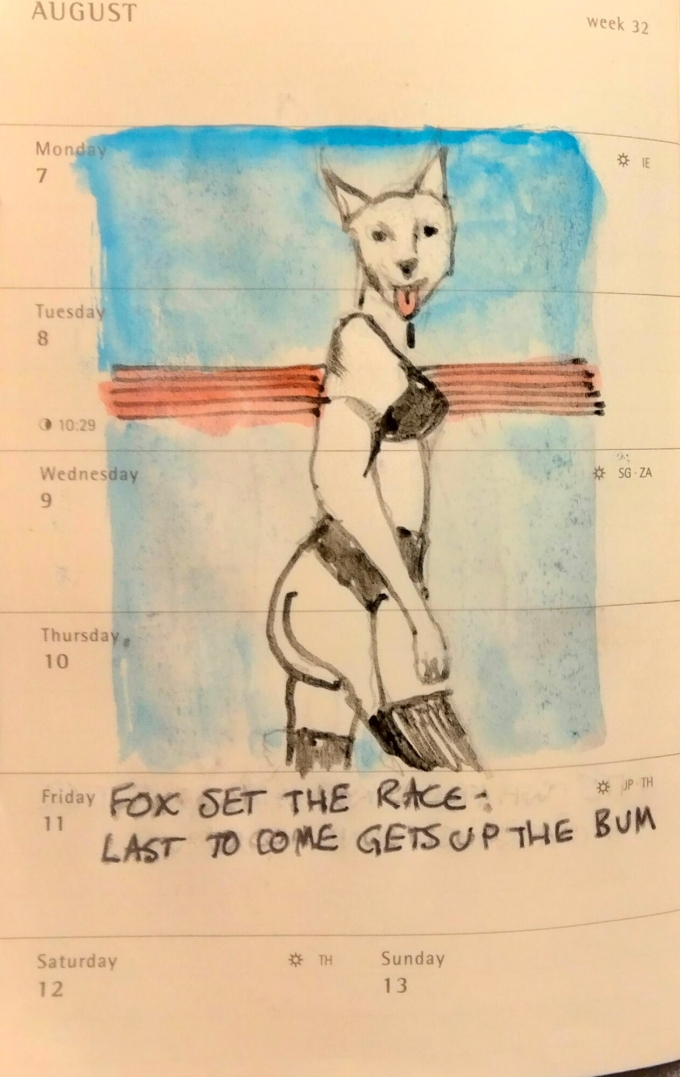 AUGUST
week 32
Monday
7
IE
Tuesday
8
10:29
Wednesday
9
SG · ZA
Thursday
10
Friday
11
JP · TH
FOX SET THE RACE -
LAST TO COME GETS UP THE BUM
Saturday
12
TH
Sunday
13